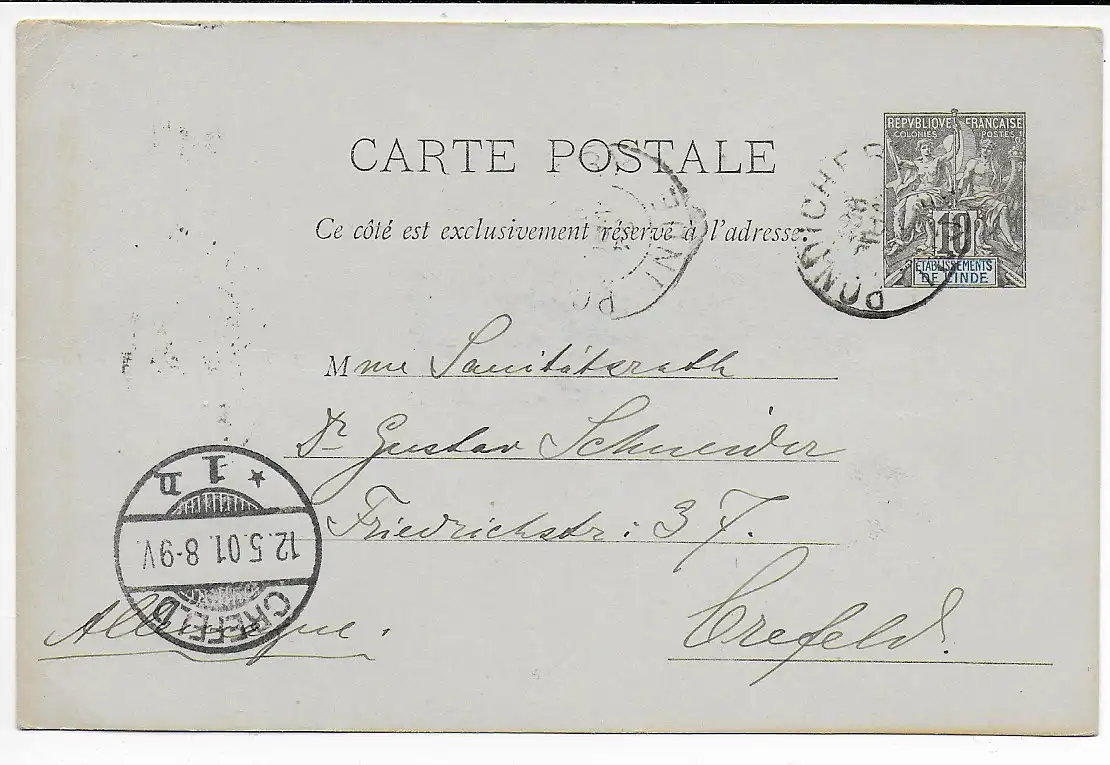 CARTE POSTALE
Ce côté est exclusivement réservé à l'adresse.
REPVBLIQUE FRANÇAISE
COLONIES POSTES
10
ETABLISSEMENTS
DE L'INDE
PONDICHERY
Mme Sanitätsrath
Dr Gustav Schneider
Friedrichstr: 37.
Crefeld.
Allemagne.
CREFELD
12.5.01. 8-9 V.
* 1 D